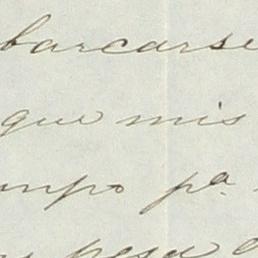 barcarse
que mis
mpo pa
pesa